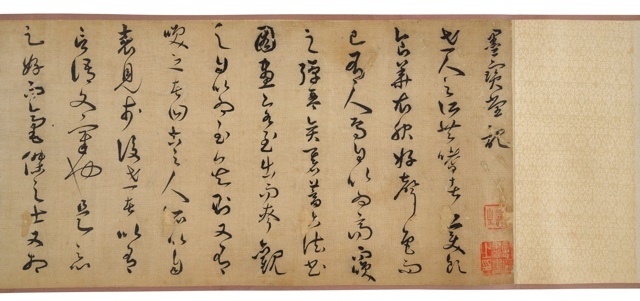 墨寶堂記
世人之所共嗜者美飲
食華衣服好聲色而
已有人焉自以為高笑
之彈琴弈棋蓄古法書
圖畫客至出而夸觀
之自以為至矣則又有
笑之者曰古之人所以自
表見於後世者以有
言語文章也是惡
足好而豪傑之士又相